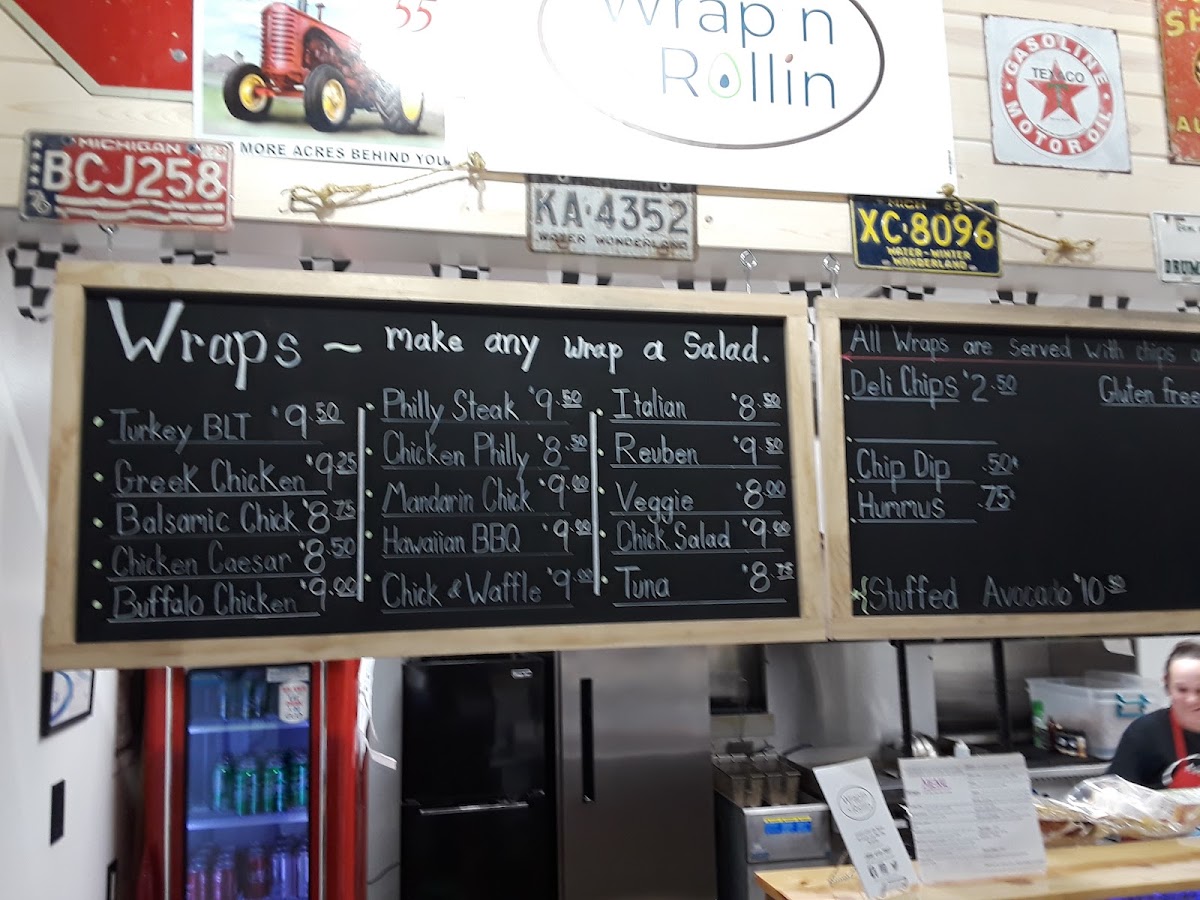 55
Wrap n
Rollin
MORE ACRES BEHIND YOU
GASOLINE
TEXACO
MOTOR OIL
MICHIGAN
76
BCJ258
KA·4352
WATER WONDERLAND
XC·8096
WATER-WINTER
WONDERLAND
Wraps ~ make any wrap a Salad.
Turkey BLT $9.50
Greek Chicken $9.25
Balsamic Chick $8.75
Chicken Caesar $8.50
Buffalo Chicken $9.00
Philly Steak $9.50
Chicken Philly $8.50
Mandarin Chick $9.00
Hawaiian BBQ $9.00
Chick & Waffle $9.00
Italian $8.50
Reuben $9.50
Veggie $8.00
Chick Salad $9.00
Tuna $8.75
All Wraps are served with chips
Deli Chips $2.50
Gluten free
Chip Dip .50¢
Hummus .75¢
Stuffed Avocado $10.50
MENU